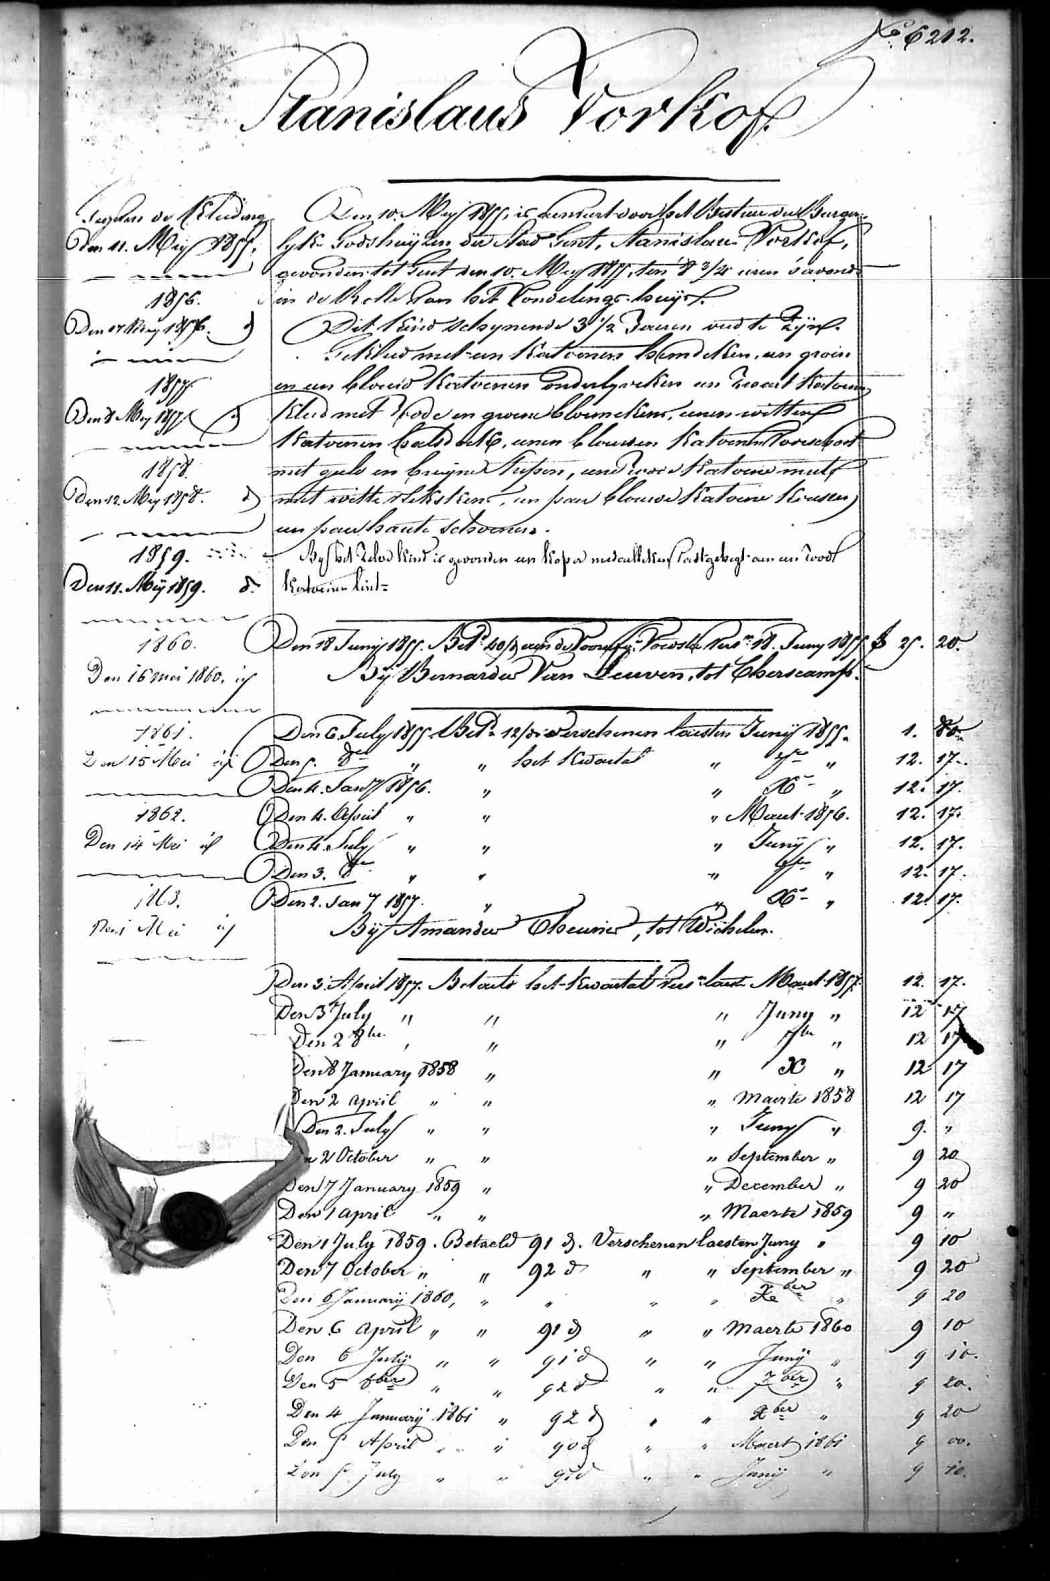 No 6212.
Stanislaus Vorkof.
Kleeding
Den 11. Meij 1855.
1856.
1857
1858
Den 12. Meij 1858. d
1859.
Den 11. Meij 1859. d.
1860.
Den 16 mei 1860. id
1861.
Den 15 Mei id
1862.
Den 14 Mei id
1863.
Mei id
Den 10. Meij 1855 is gemeert door het Bestier der Burger-
lyke Godshuyzen der stad Gent, Stanislaus Vorkof,
gevonden tot Gent den 10. Meij 1855, ten 8 3/4 uren s'avonds
in de Rolle van het Vondelings-huys.
Dit kind schynende 3 1/2 Jaeren oud te Zyn.
Gekleed met een Katoenen hemdeken, en groin
en een blauw katoenen onderlyfken en zwart katoenen
kleed met roode en groene bloemekens, eenen witten
katoenen halsdoek, eenen blauwen katoenen voorschoot
met gele en bruyne
met witte plekskens, en paer blouwe katoene koussen,
en paer haute schoenen.
By het zelve kind is gevonden een koper medalleken vastgehegt aen een rood
katoenen lint.
Den 18 Junij 1855. 18. Juny 1855 25. 20.
By Bernardus Van Leuven, tot Cherscamp.
Den 6 July 1855 Bet. 12/ verschenen laesten Junij 1855. 1. 80.
Den 5. 8re " " het kwartal " 7re " 12. 17.
Den 4. Jany 1856. " " Xre " 12. 17.
Den 4. April " " " Maert 1856. 12. 17.
Den 4. July " " " Junij " 12. 17.
Den 3. 8re " " " 7re " 12. 17.
Den 2. Jany 1857. " " Xre " 12. 17.
By Amandus Theunis, tot Wichelen.
Den 3. April 1857. Betaelt het kwartal vers. laest Maert 1857. 12. 17.
Den 3 July " " " Juny " 12 17
Den 2 8bre " " " 7bre " 12 17
Den 8 January 1858 " " X " 12 17
Den 2 april " " " maerte 1858 12 17
Den 2. July " " " Juny " 9. "
Den 2 October " " " September " 9 20
Den 7 January 1859 " " December " 9 20
Den 1 april " " " Maerte 1859 9 "
Den 1 July 1859. Betaeld 91 d. Verschenen laesten Juny " 9 10
Den 7 October " " 92 d " " September " 9 20
Den 6 Januarij 1860, " " " " Xber " 9 20
Den 6 april " " 91 d " " maerte 1860 9 10
Den 6 July " " 91 d " " Junij " 9 10.
Den 5 8ber " " 92 d " " 7ber " 9 20.
Den 4 Januarij 1861 " 92 d " " Xber " 9 20
Den 5 April " " 90 d " " Maert 1861 9 00.
Den 5 July " " 91 d " " Junij " 9 10.